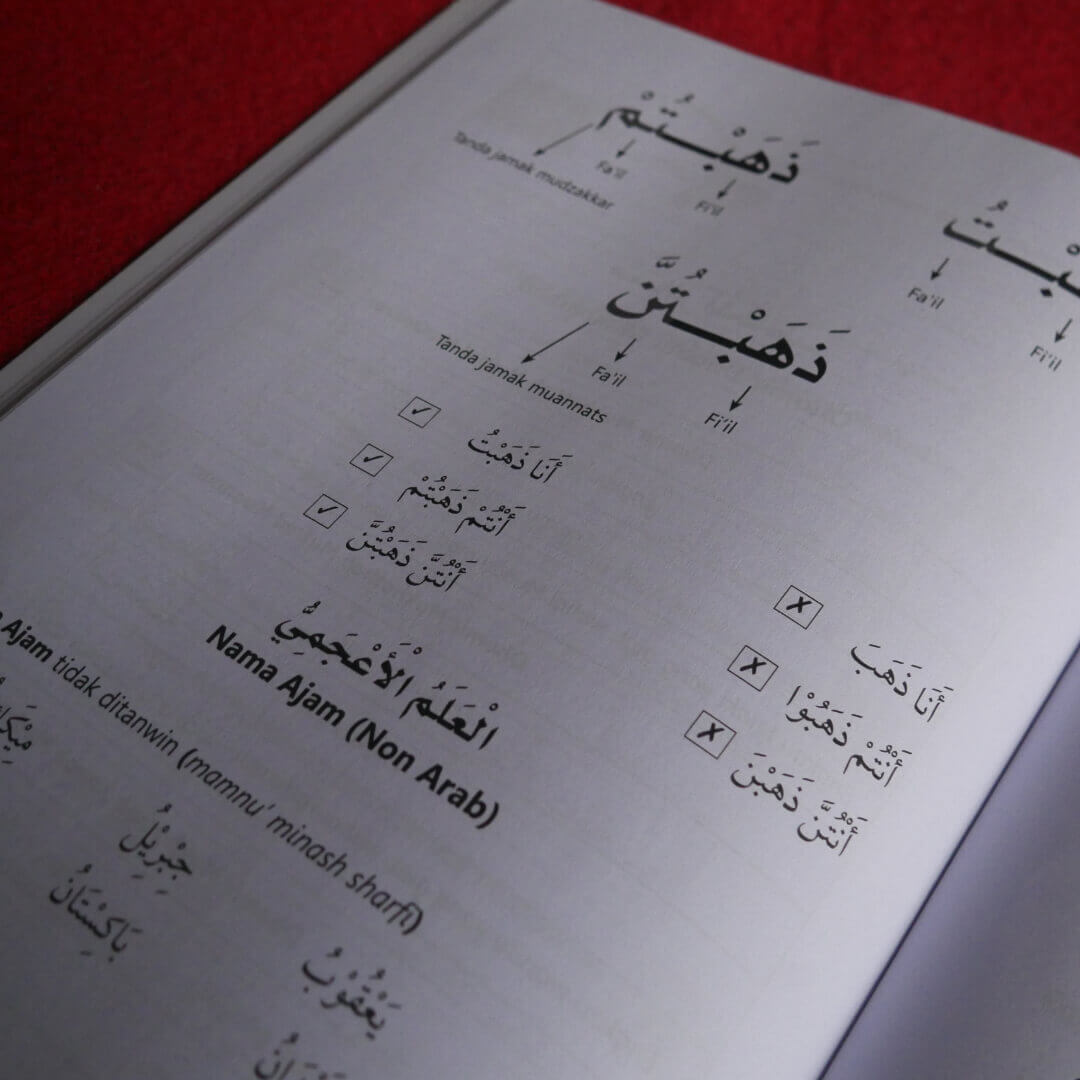 ذَهَبْتُمْ
Tanda jamak mudzakkar
Fa'il
Fi'il
Fa'il
Fi'il
ذَهَبْتُنَّ
Tanda jamak muannats
Fa'il
Fi'il
أَنَا ذَهَبْتُ ✓
أَنْتُمْ ذَهَبْتُمْ ✓
أَنْتُنَّ ذَهَبْتُنَّ ✓
أَنَا ذَهَبَ ✗
أَنْتُمْ ذَهَبُوْا ✗
أَنْتُنَّ ذَهَبْنَ ✗
الْعَلَمُ الْأَعْجَمِيُّ
Nama Ajam (Non Arab)
Ajam tidak ditanwin (mamnu' minash sharfi)
يَعْقُوْبُ جِبْرِيْلُ
بَاكِسْتَانُ